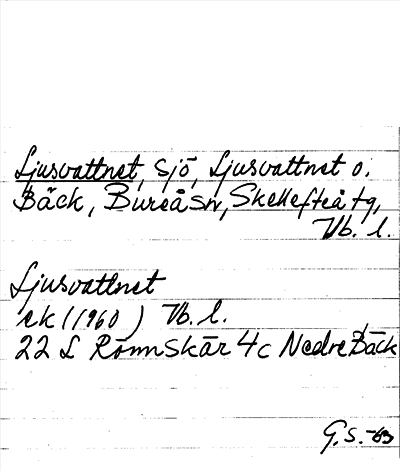 Ljusvattnet, sjö, Ljusvattnet o.
Bäck, Bureå sn, Skellefteå tg,
Vb. l.
Ljusvattnet
ek (1960) Vb. l.
22 L Rönnskär 4c Nedre Bäck
G.S. -63